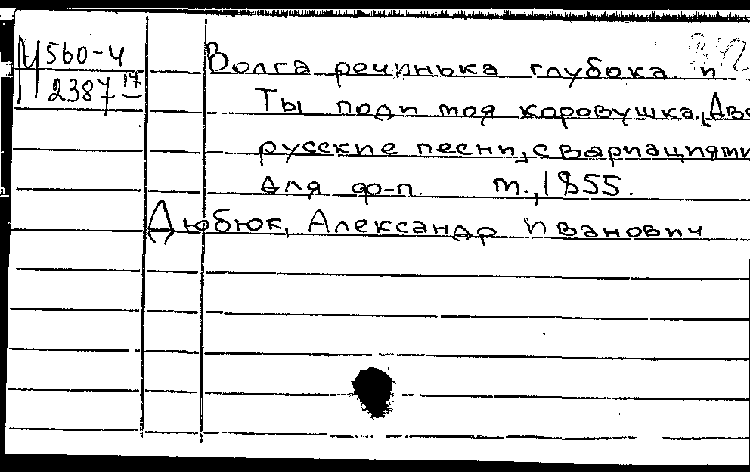 М 560-4
2387 17
Волга речинька глубока и
Ты поди моя коровушка. [Две
русские песни, с вариациями
для ф-п. М., 1855.
Дюбюк, Александр Иванович